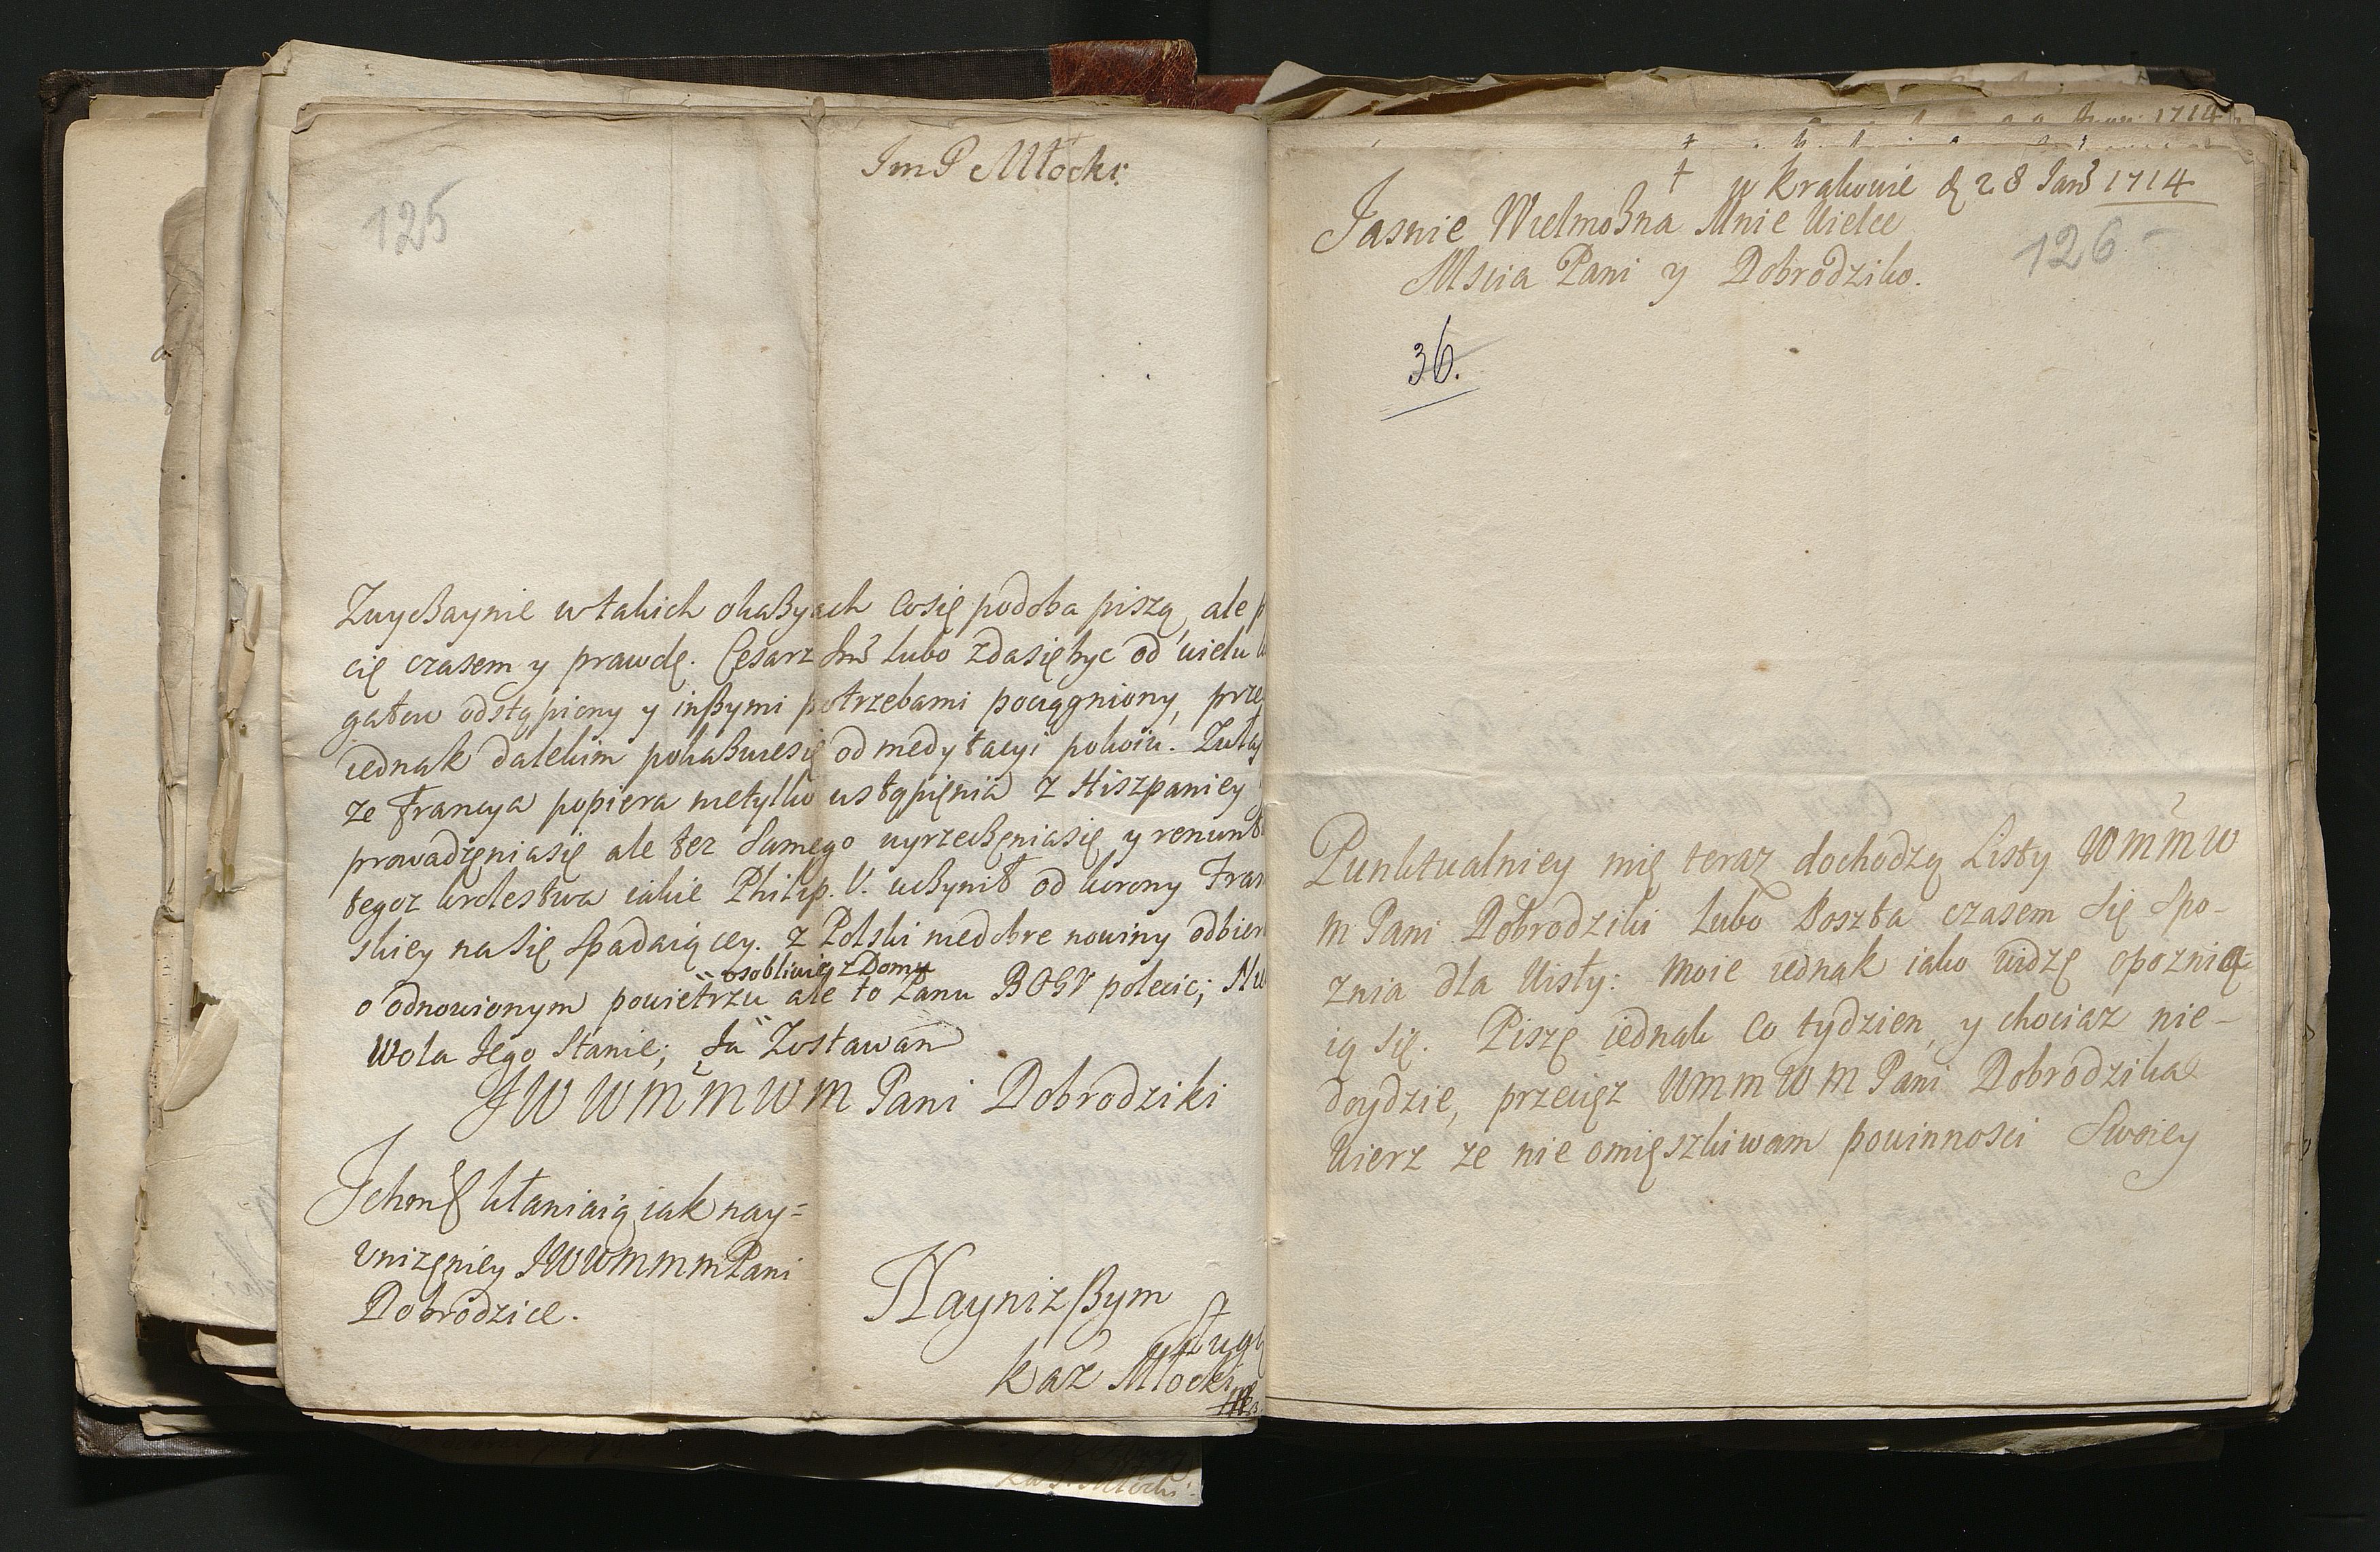 ImP Młocki
125
Zwyckaynie w takich okaßyach cosię podoba piszą, ale
cię czasem y prawdę. Cesarz Jm̃ lubo zdasiębyc od wielu
gatow odstąpiony y inßymi potrzebami pociągniony,
iednak dalekim pokaßuiesię od medytacyi pokoiu.
ze Francya popiera nietylko ustąpięnia z Hiszpaniey
prowadzęniasię ale tez samego wyrzeckęniasię y
tegoz krolestwa iakie Philip. V. uckynił od korony
skiey na się spadaiącey. z Polski niedobre nowiny
osobliwie z Domu
o odnowionym powietrzu ale to Panu BOGV polecic;
Wola Jego Stanie; Ja Zostawam
JWWMMWM Pani Dobrodziki
Ichmć kłaniaią iak nay=
Vnizęniey JWWMMMPani
Dobrodzice.
Nayniz ßym
Sługą
Kaz Młocki
Jan: 1714
† w Krakowie d 28 Jan 1714
Jasnie Wielmoßna Mnie Wielce
Mscia Pani y Dobrodziko.
126
36.
Punktualniey mię teraz dochodzą Listy WMMW
M Pani Dobrodziki lubo Poszta czasem się spo-
znia dla Wisły: moie iednak iako widzę opoznia-
ią się. Piszę iednak co tydzien, y chociaz nie-
doydzie, przecięz WMMWM Pani Dobrodzika
Wierz ze nie omięszkiwam powinnosci Swoiey
Młocki